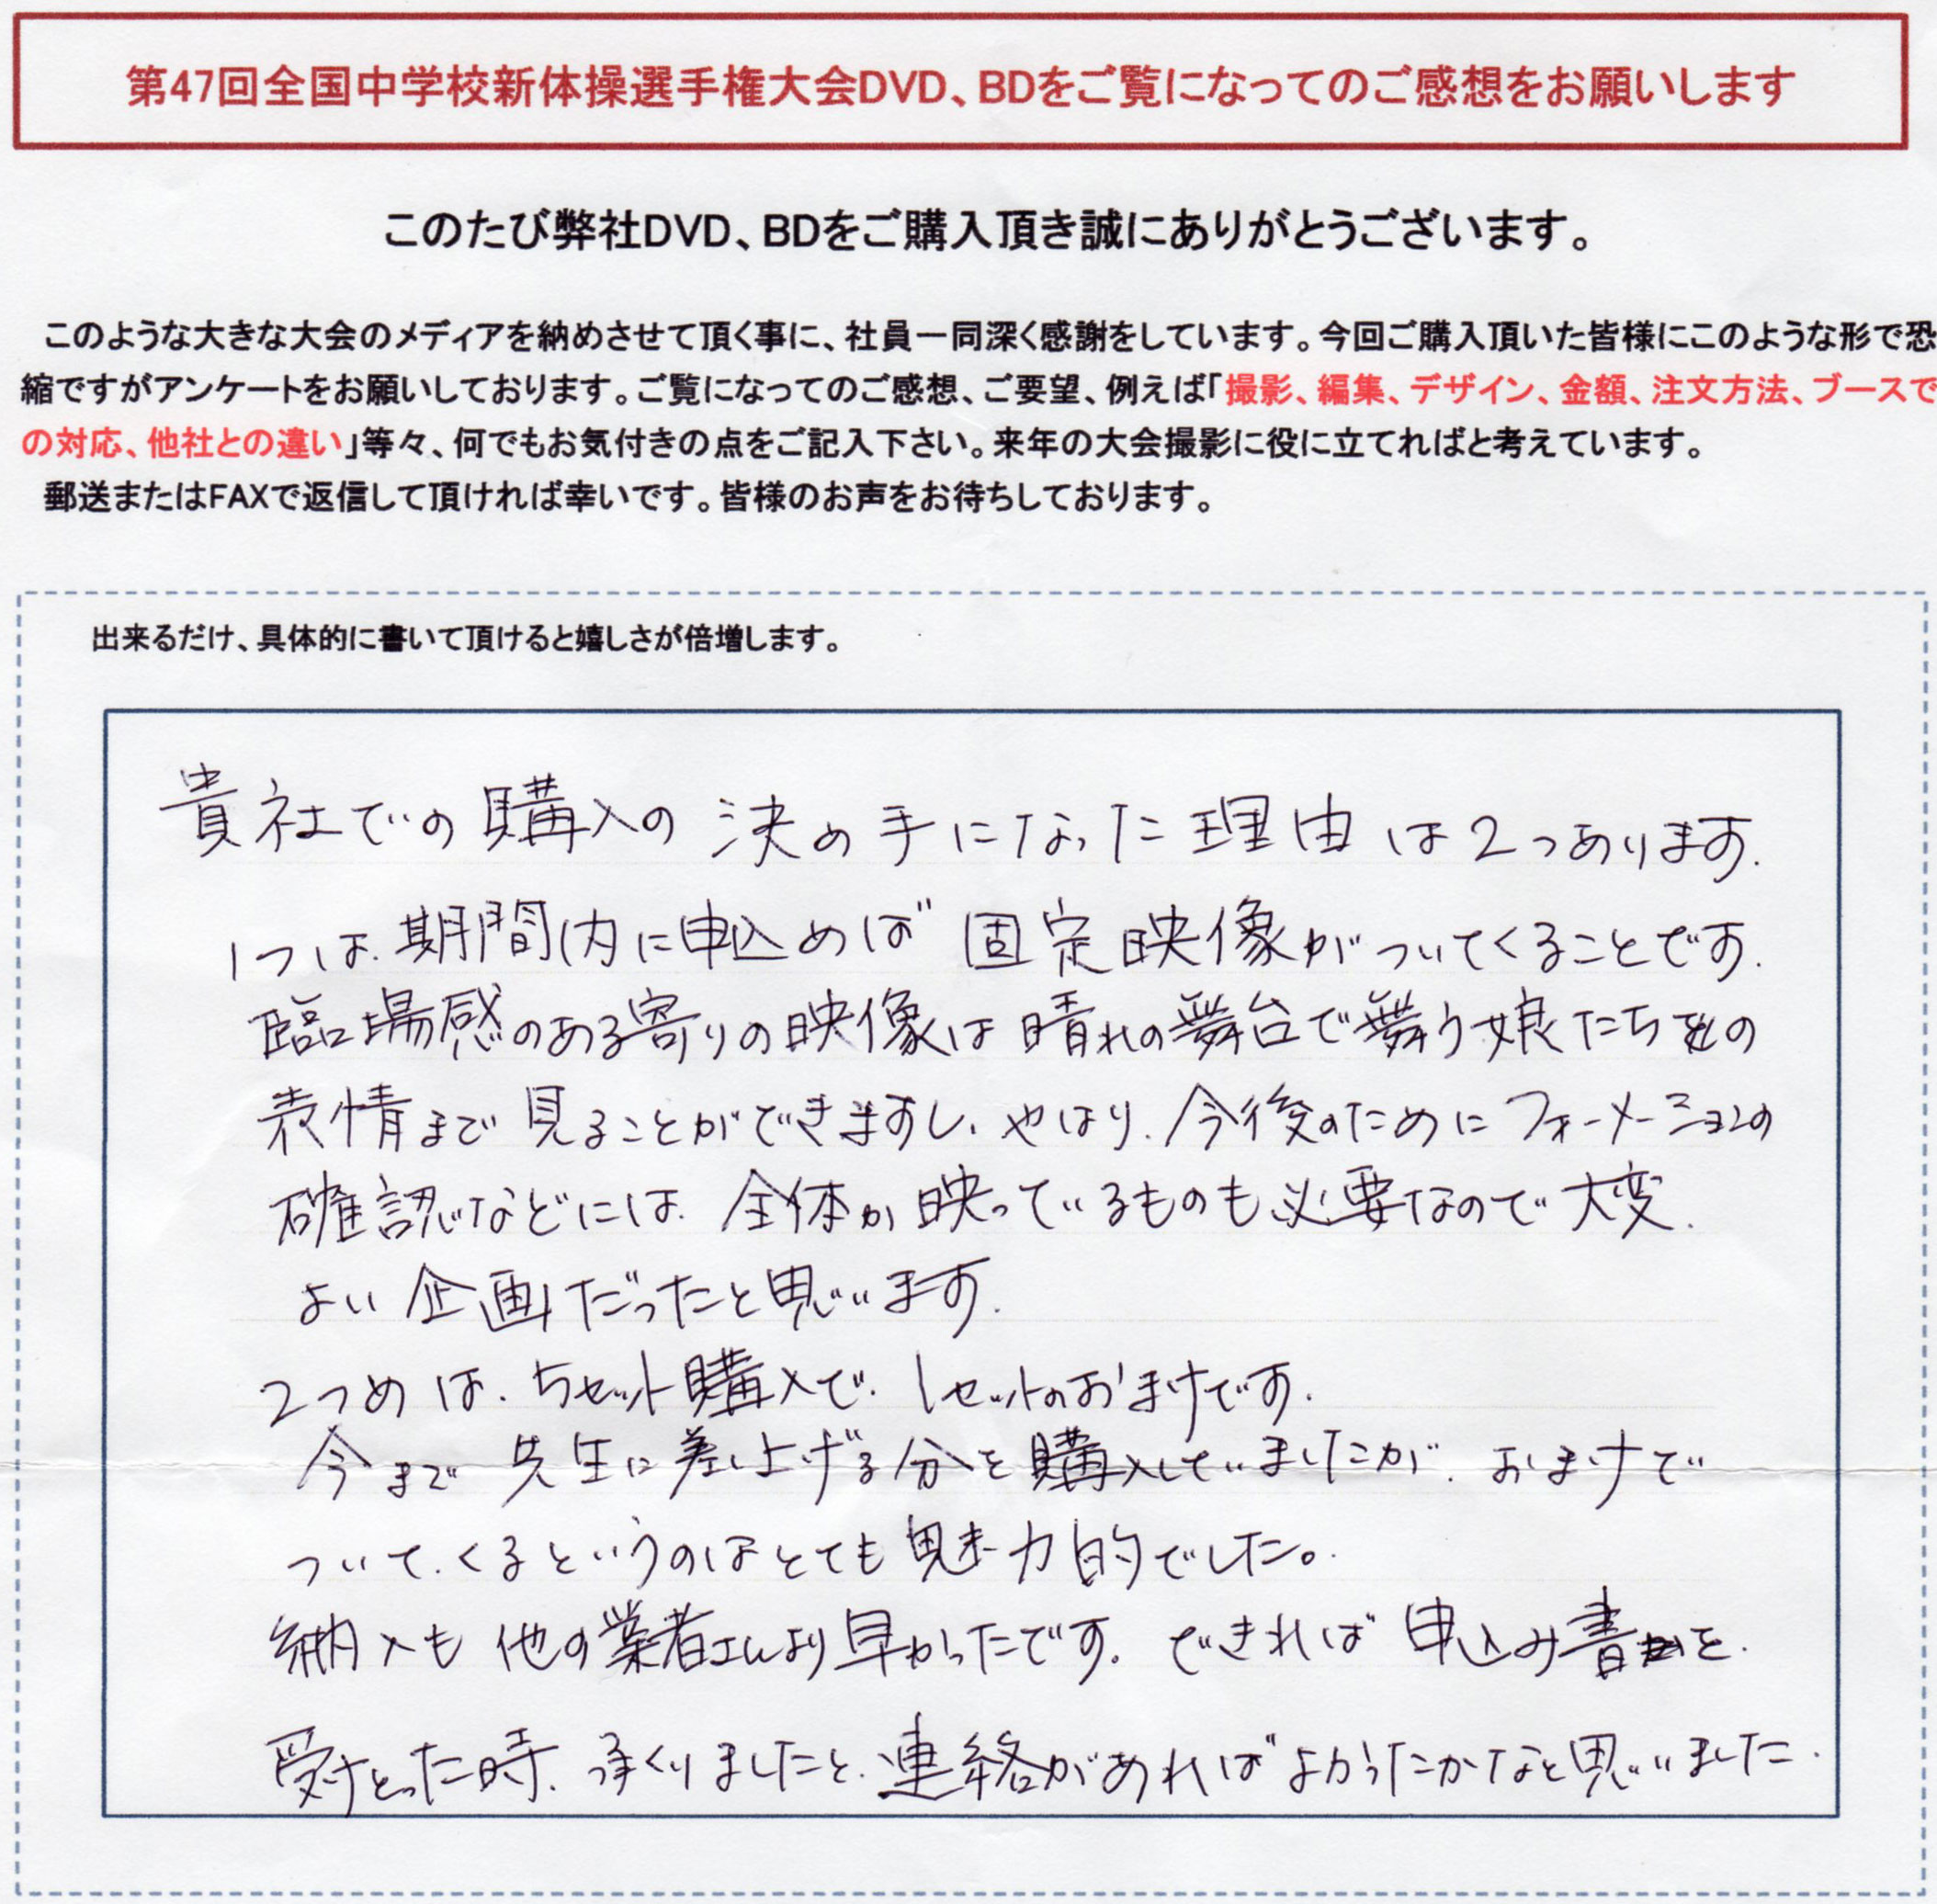 第47回全国中学校新体操選手権大会DVD、BDをご覧になってのご感想をお願いします
このたび弊社DVD、BDをご購入頂き誠にありがとうございます。
このような大きな大会のメディアを納めさせて頂く事に、社員一同深く感謝をしています。今回ご購入頂いた皆様にこのような形で恐
縮ですがアンケートをお願いしております。ご覧になってのご感想、ご要望、例えば「撮影、編集、デザイン、金額、注文方法、ブースで
の対応、他社との違い」等々、何でもお気付きの点をご記入下さい。来年の大会撮影に役に立てればと考えています。
郵送またはFAXで返信して頂ければ幸いです。皆様のお声をお待ちしております。
出来るだけ、具体的に書いて頂けると嬉しさが倍増します。
貴社での購入の決め手になった理由は2つあります.
1つは.期間内に申込めば固定映像がついてくることです.
臨場感のある寄りの映像は晴れの舞台で舞う娘たちの
表情まで見ることができますし、やはり、今後のためにフォーメーションの
確認などには、全体が映っているものも必要なので大変.
よい企画だったと思います.
2つめは、5セット購入で、1セットのおまけです.
今まで先生に差し上げる分を購入していましたが、おまけで
ついてくるというのはとても魅力的でした。
納入も他の業者さんより早かったです.できれば申込み書を.
受けとった時、承りましたと、連絡があればよかったかなと思いました.